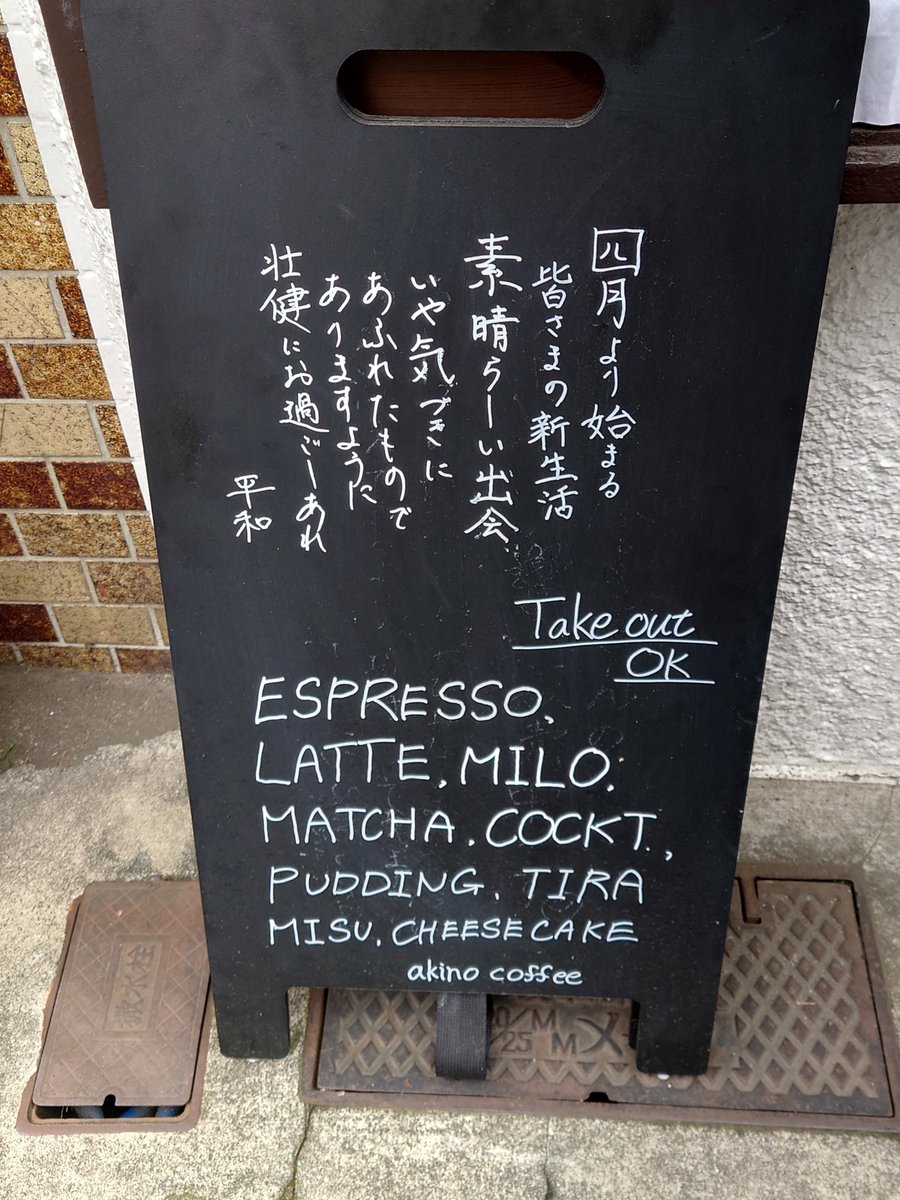 四月より始まる
皆さまの新生活
素晴らしい出会、
いや気づきに
あふれたもので
ありますように
壮健にお過ごしあれ
平和
Take out
OK
ESPRESSO,
LATTE, MILO,
MATCHA, COCKT.,
PUDDING, TIRA
MISU, CHEESE CAKE
akino coffee
散水栓
20/M
25 M